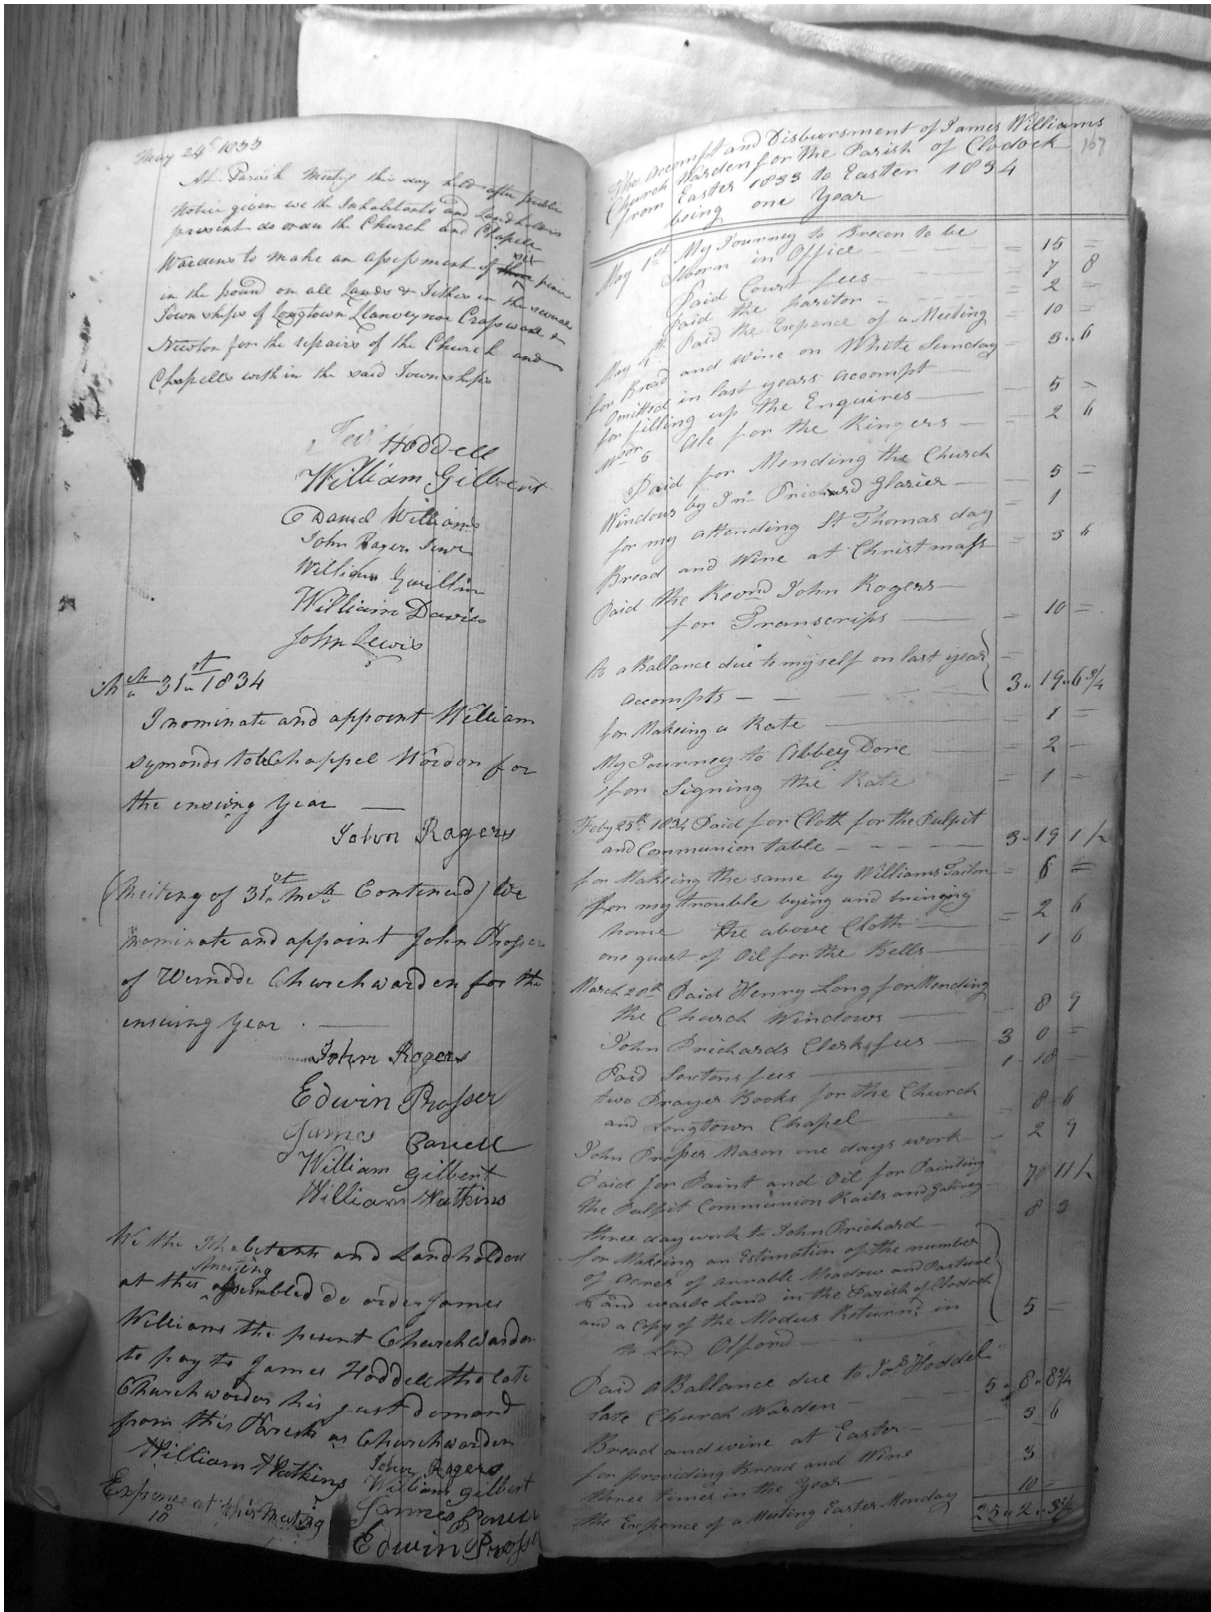 May 24th 1833
At Parish Meeting this day held after public
Notice given we the Inhabitants and Landholders
present do order the Church and Chapell
Wardens to make an assessment of three six pence
in the pound on all Lands & Tithes in the several
Townships of Longtown Llanveynoe Crasswall &
Newton for the repairs of the Church and
Chapells with in the said Townships
Hoddell
William Gilbert
Daniel Williams
John Rogers Junr
William Gwillim
William Davies
John Lewis
31st 1834
I nominate and appoint William
Symonds to be Chappel Warden for
the ensuing Year
John Rogers
(Meeting of 31st Continued) We
nominate and appoint John Prosser
of Werndde Churchwarden for the
ensuing Year
John Rogers
Edwin Prosser
James Parsell
William Gilbert
William Watkins
We the Inhabitants and Landholders
at this meeting assembled do order James
Williams the present Churchwarden
to pay to James Hoddell the late
Churchwarden his just demand
from this Parish as Churchwarden
William Watkins John Rogers
William Gilbert
Expence at this meeting James
10 Edwin Prosser
The Accompt and Disbursment of James Williams
Church Warden for the Parish of Clodock 167
from Easter 1833 to Easter 1834
being one Year
May 1st My Journey to Brecon to be
Sworn in Office = 15 =
Paid Court fees = 7 8
Paid the paritor = 2 =
May 4th Paid the Expence of a Meeting = 10 =
for Bread and Wine on White Sunday 3 6
Omitted in last years accompt
for filling up the Enquires 5 =
Novr 5 Ale for the Ringers 2 6
Paid for Mending the Church
Windows by Jno Prichard Glazier 5 =
for my attending St Thomas day 1
Bread and Wine at Christmass 3 6
Paid the Revrnd John Rogers
for Transcrips 10 =
to a Ballance due to myself on last year
accompts 3 19 6 3/4
for Makeing a Rate 1 =
My Journey to Abbey Dore 2
for Signing the Rate 1
Feby 25th 1834 Paid for Cloth for the Pulpit
and Communion table 3 19 1 1/2
for Makeing the same by Williams Tailor 6 =
for my trouble bying and bringing
home the above Cloth 2 6
one quart of Oil for the Bells 1 6
March 20th Paid Henry Long for Mending
the Church Windows 8 9
John Prichards Clerks fees 3 0 =
Paid Sextons fees 1 18
two Prayer Books for the Church
and Longtown Chapel 8 6
John Prosser Mason one days work 2 9
Paid for Paint and Oil for Painting
the Pulpit Communion Rails and 7 11 1/2
three day work to John Prichard 8 3
for Makeing an Estimation of the number
of acres of arrable Meadow and Pasture
and waste Land in the Parish of Clodock
and a Copy of the Modus Returned in
to Lord Oxford 5
Paid a Ballance due to Hoddel
late Church Warden 5 8 8 3/4
Bread and wine at Easter 3 6
for providing Bread and Wine
three times in the Year 3
the Expence of a Meeting Easter Monday 10
25 2